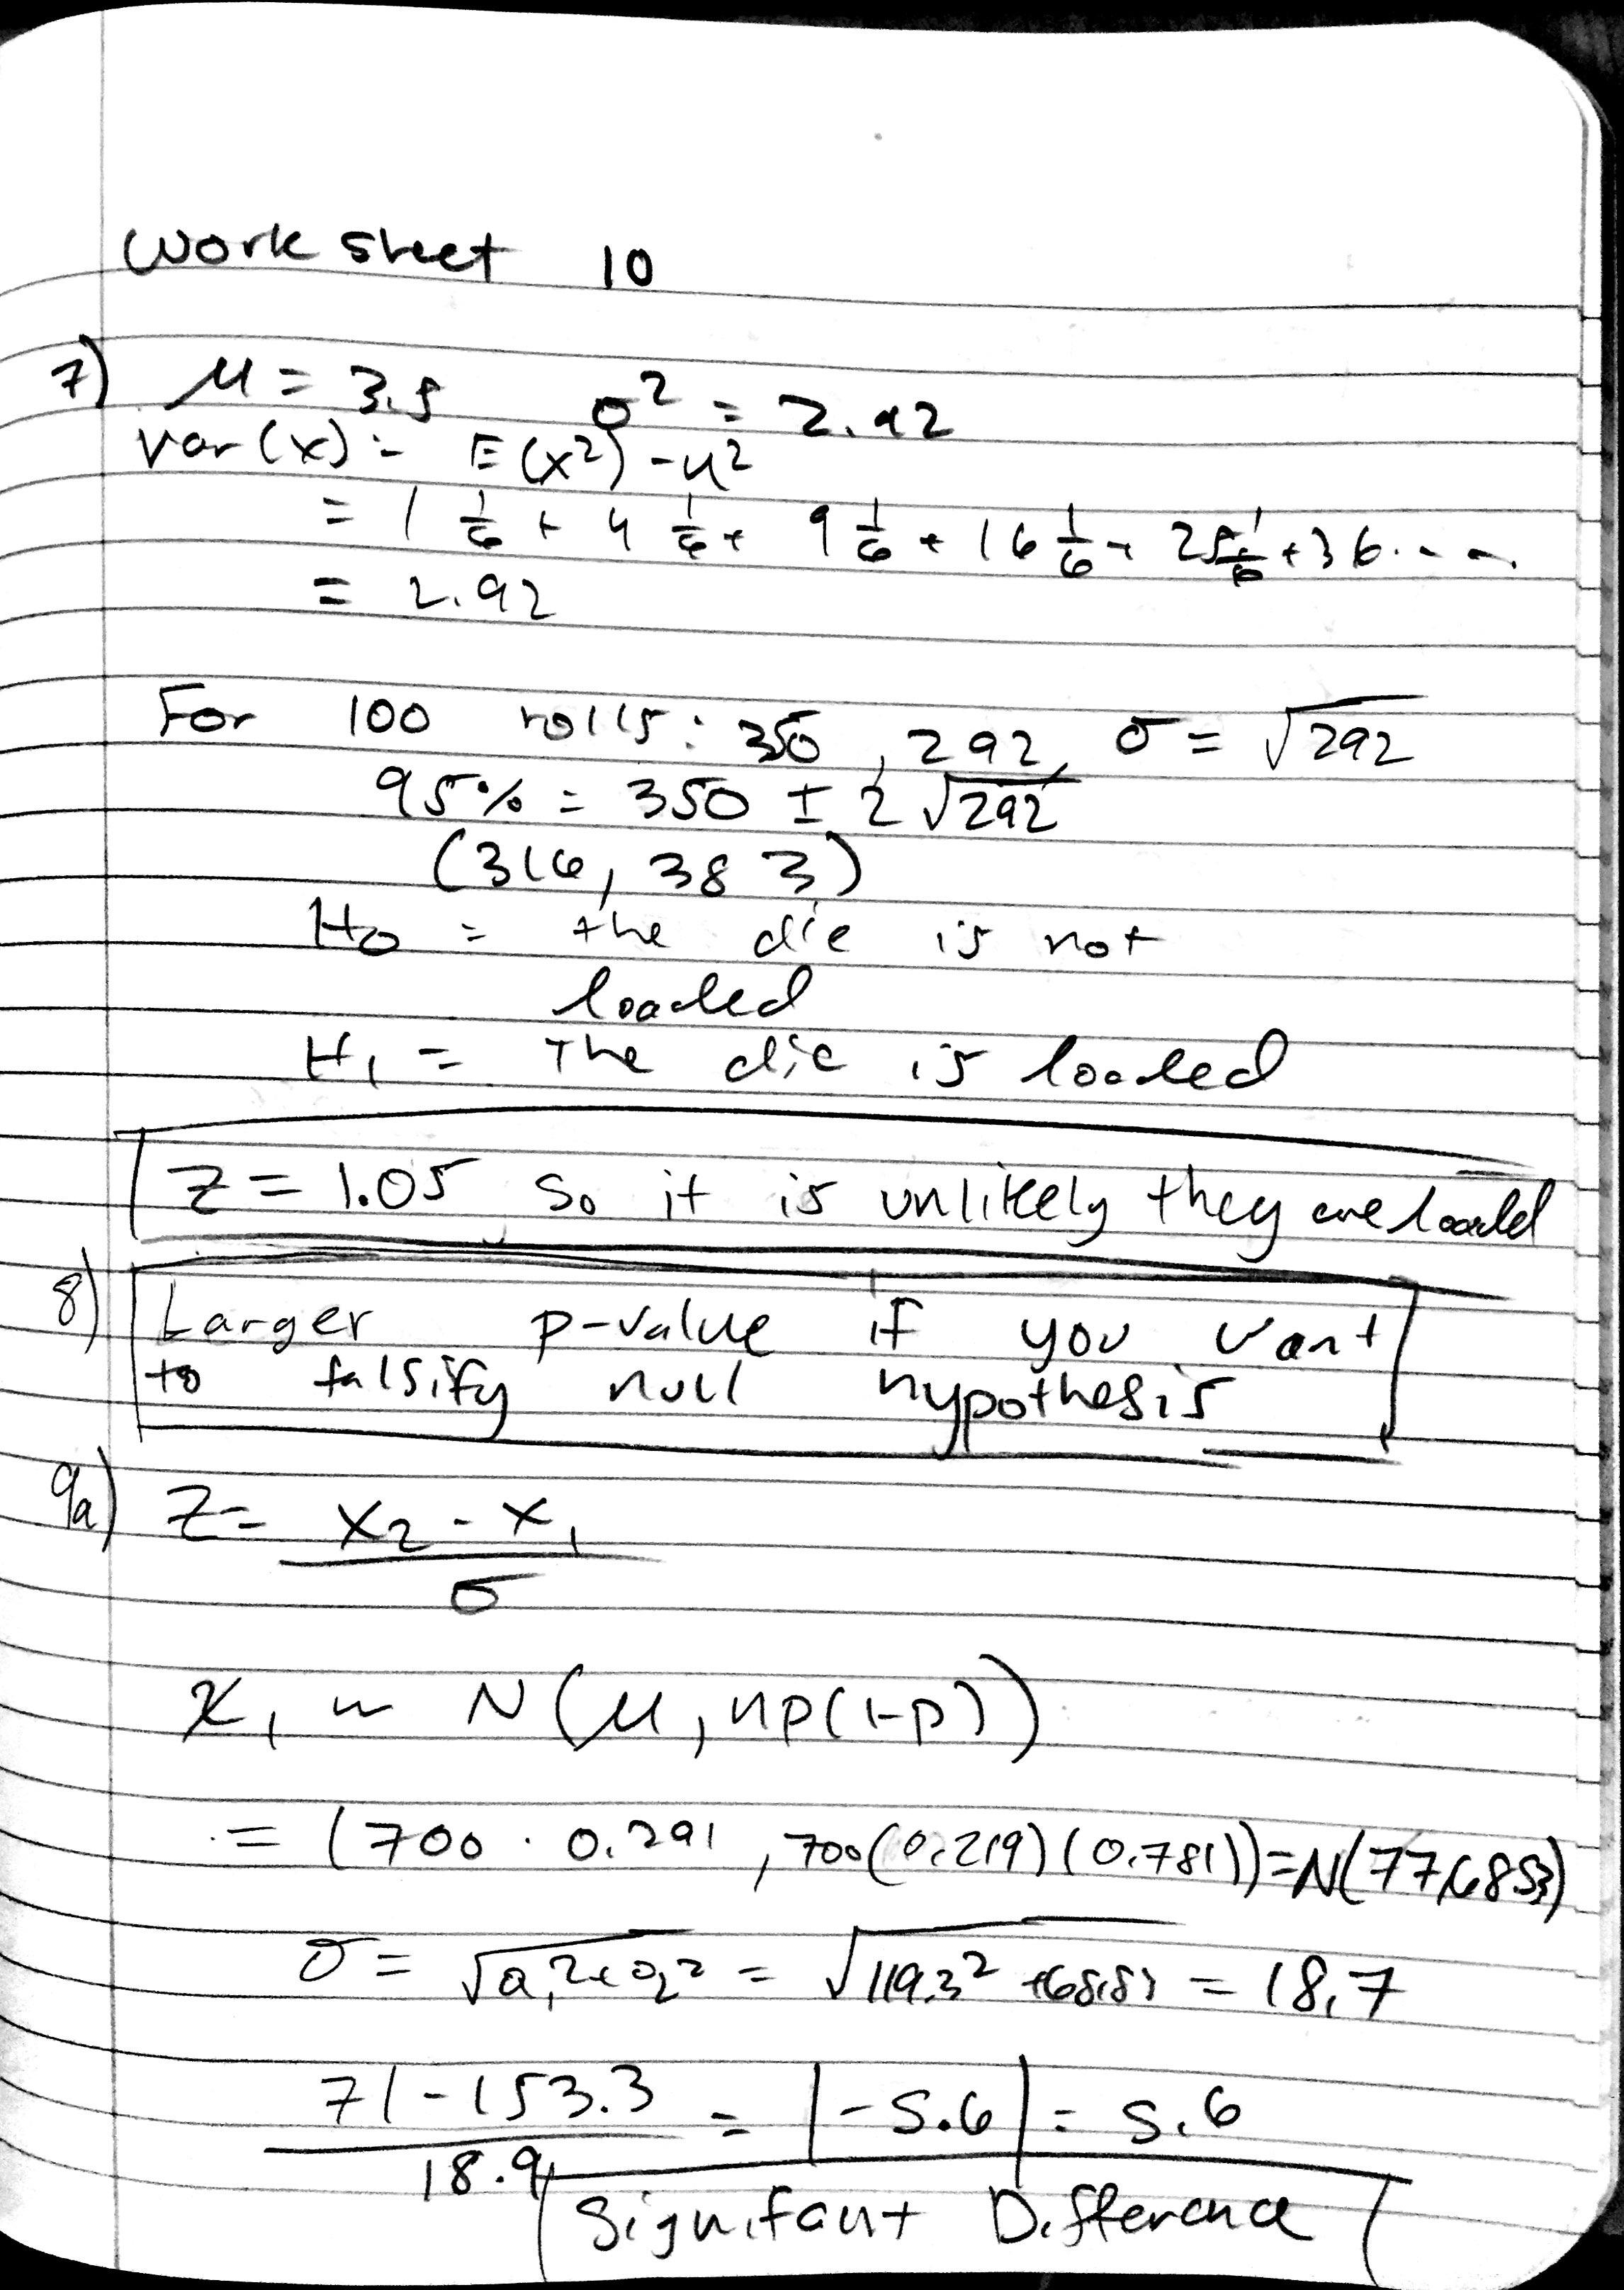 Work sheet 10
7) μ = 3.5 σ² = 2.92
var(x) = E(x²) - μ²
= 1 1/6 + 4 1/6 + 9 1/6 + 16 1/6 + 25 1/6 + 36 ....
= 2.92
For 100 rolls: 350, 292, σ = √292
95% = 350 ± 2 √292
(316, 383)
H0 = the die is not
loaded
H1 = The die is loaded
Z = 1.05 so it is unlikely they are loaded
8) Larger p-value if you want
to falsify null hypothesis
9a) Z = (x2 - x1) / σ
X1 ~ N(μ, np(1-p))
= (700 · 0.291, 700(0.219)(0.781)) = N(77,68.53)
σ = √σ1²+σ2² = √119.3² + 68.83 = 18.7
(71 - 153.3) / 18.9 = |-5.6| = 5.6
Signifant Difference